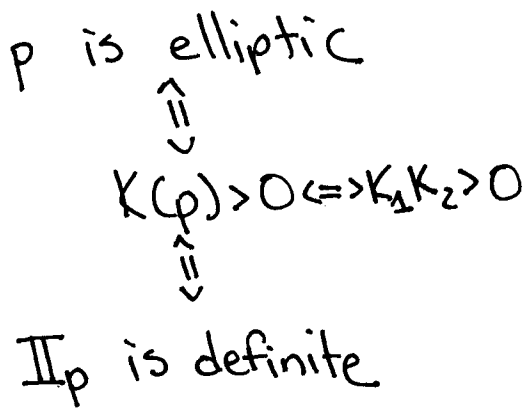 p is elliptic
⇕
K(p)>0<=>K₁K₂>0
⇕
II_p is definite